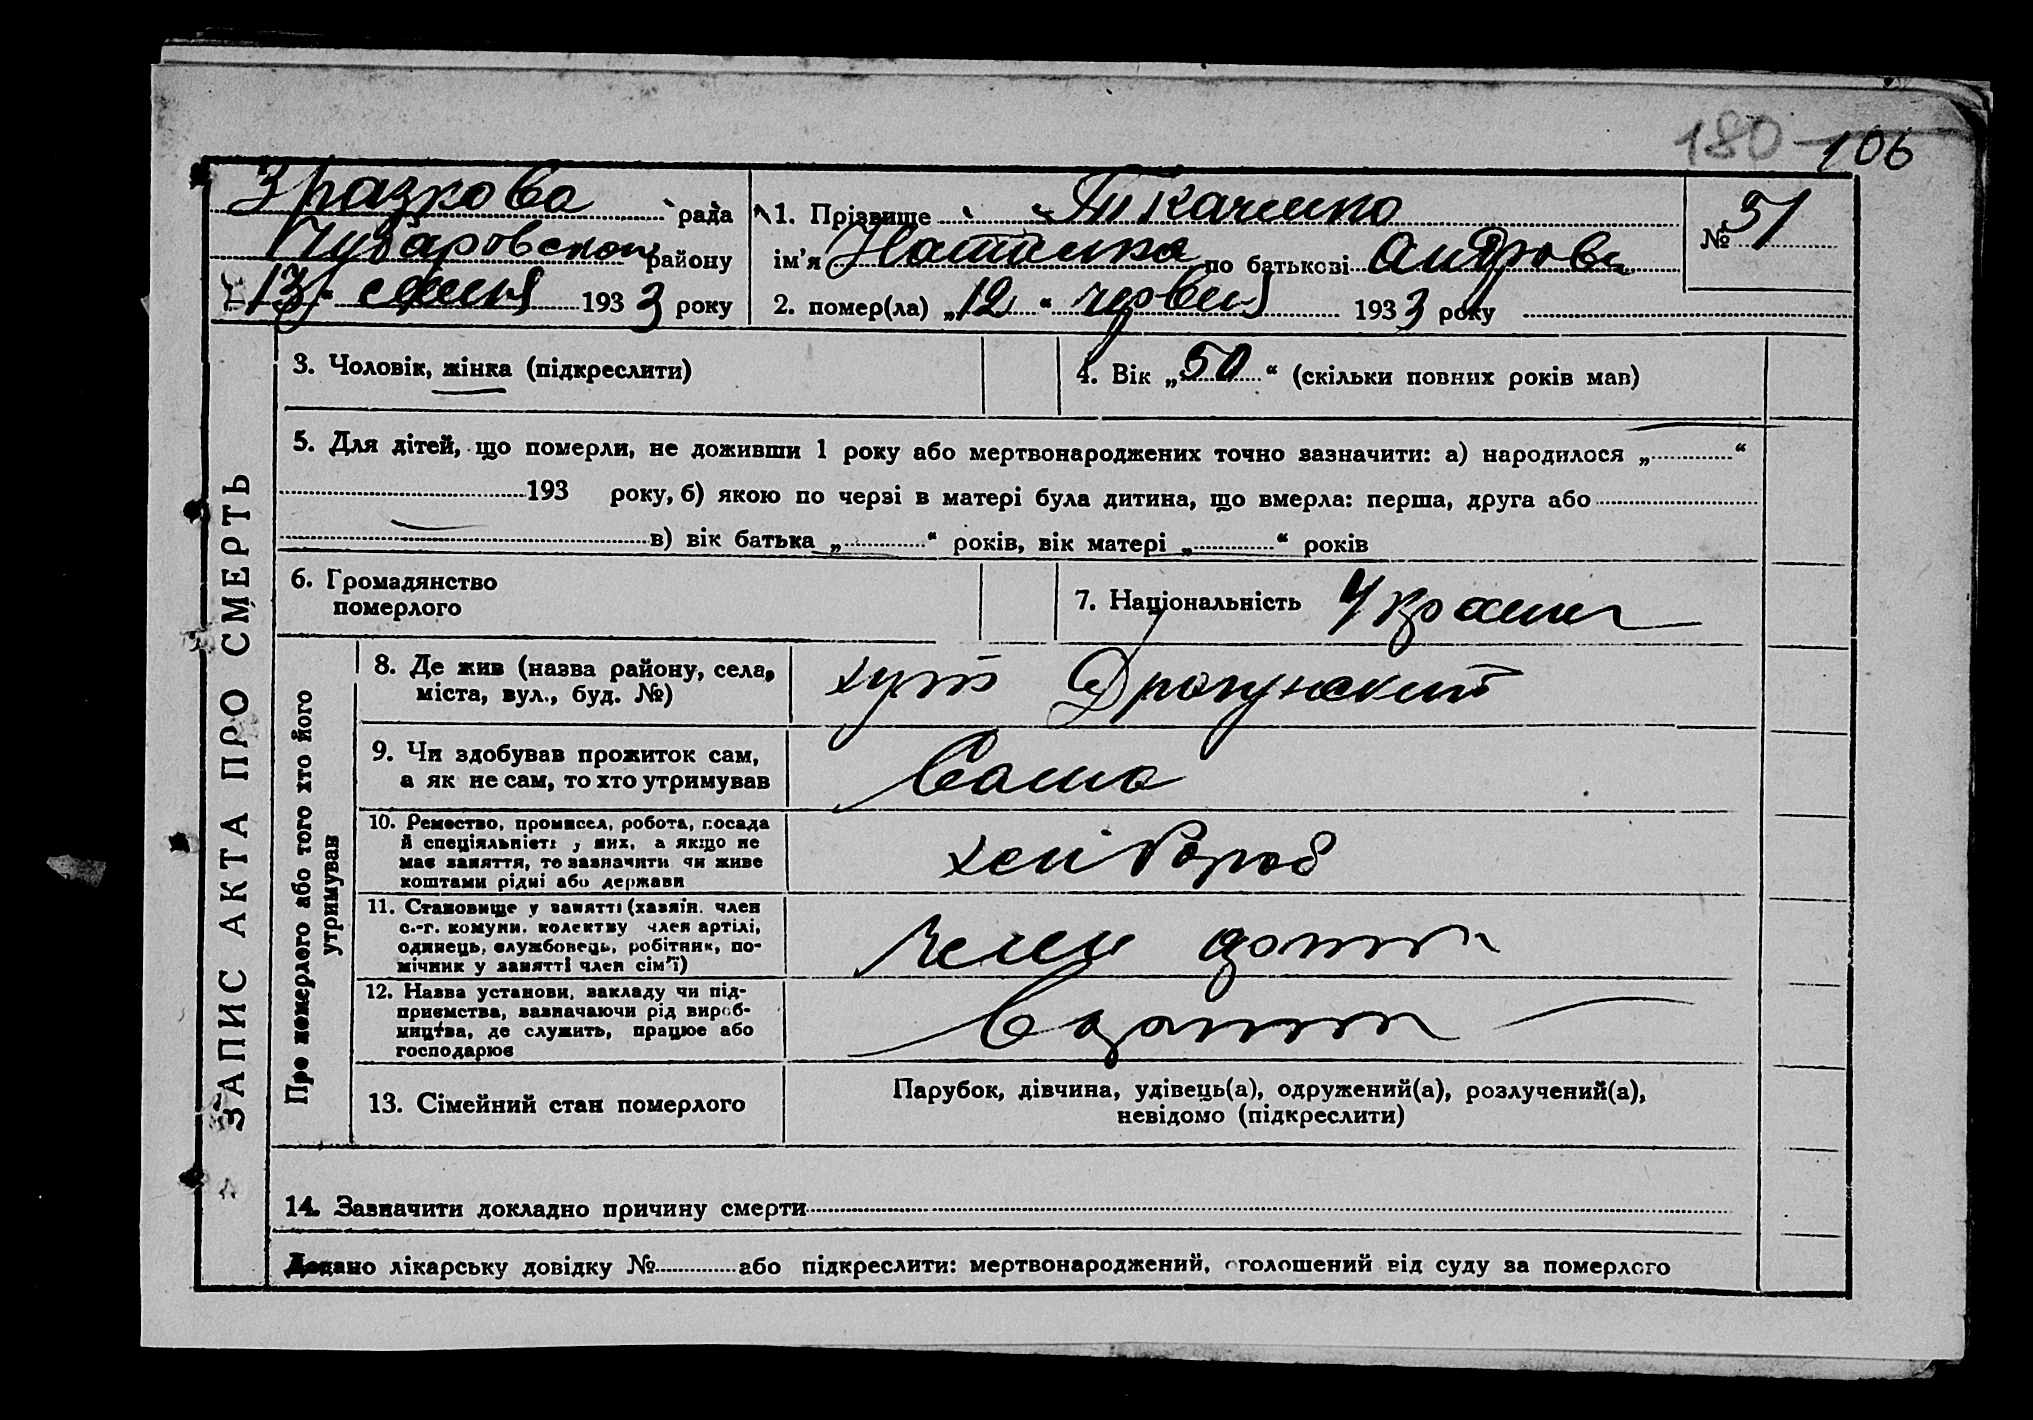 180 106
Зразкова рада
Чубаровского району
"13" серпня 1933 року
1. Прізвище Ткаченко
ім'я Наталка по батькові Андрова
2. помер(ла) „12“ червня 1933 року
№ 51
ЗАПИС АКТА ПРО СМЕРТЬ
3. Чоловік, жінка (підкреслити)
4. Вік „50“ (скільки повних років мав)
5. Для дітей, що померли, не доживши 1 року або мертвонароджених точно зазначити: а) народилося „ “
193 року, б) якою по черзі в матері була дитина, що вмерла: перша, друга або
в) вік батька „ “ років, вік матері „ “ років
6. Громадянство
померлого
7. Національність Украин
Про померлого або того хто його
утримував
8. Де жив (назва району, села,
міста, вул., буд. №)
хут Драгунский
9. Чи здобував прожиток сам,
а як не сам, то хто утримував
Сама
10. Ремество, промисел, робота, посада
й спеціяльність у них, а якщо не
має заняття, то зазначити чи живе
коштами рідні або держави
хлібороб
11. Становище у занятті (хазяїн, член
с.-г. комуни, колективу член артілі,
одинець, службовець, робітник, по-
мічник у занятті член сім'ї)
член
12. Назва установи, закладу чи під-
приємства, зазначаючи рід вироб-
ництва, де служить, працює або
господарює
13. Сімейний стан померлого
Парубок, дівчина, удівець(а), одружений(а), розлучений(а),
невідомо (підкреслити)
14. Зазначити докладно причину смерти
Додано лікарську довідку № або підкреслити: мертвонароджений, оголошений від суду за померлого